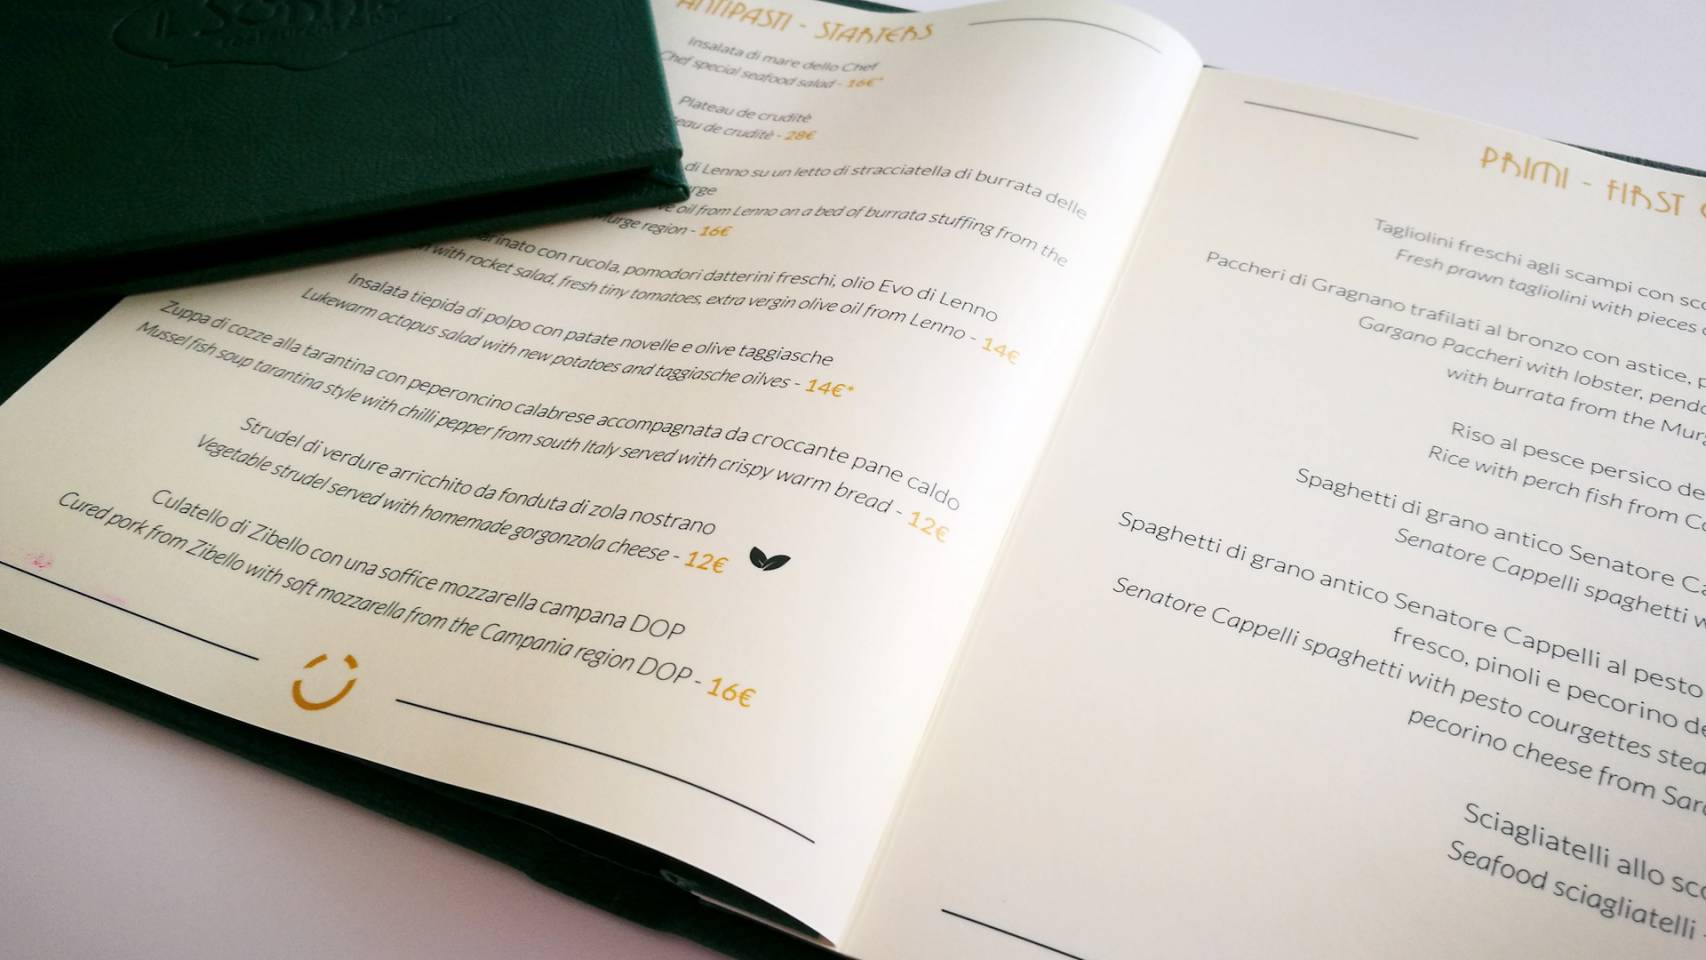 IL
ANTIPASTI - STARTERS
Insalata di mare dello Chef
Chef special seafood salad - 16€*
Plateau de cruditè
de cruditè - 28€
di Lenno su un letto di stracciatella di burrata delle
oil from Lenno on a bed of burrata stuffing from the
region - 16€
con rucola, pomodori datterini freschi, olio Evo di Lenno
with rocket salad, fresh tiny tomatoes, extra vergin olive oil from Lenno - 14€
Insalata tiepida di polpo con patate novelle e olive taggiasche
Lukewarm octopus salad with new potatoes and taggiasche oilves - 14€*
Zuppa di cozze alla tarantina con peperoncino calabrese accompagnata da croccante pane caldo
Mussel fish soup tarantina style with chilli pepper from south Italy served with crispy warm bread - 12€
Strudel di verdure arricchito da fonduta di zola nostrano
Vegetable strudel served with homemade gorgonzola cheese - 12€
Culatello di Zibello con una soffice mozzarella campana DOP
Cured pork from Zibello with soft mozzarella from the Campania region DOP - 16€
PRIMI - FIRST
Tagliolini freschi agli scampi con
Fresh prawn tagliolini with pieces
Paccheri di Gragnano trafilati al bronzo con astice,
Gargano Paccheri with lobster,
with burrata from the
Riso al pesce persico
Rice with perch fish from
Spaghetti di grano antico Senatore
Senatore Cappelli spaghetti
Spaghetti di grano antico Senatore Cappelli al pesto
fresco, pinoli e pecorino
Senatore Cappelli spaghetti with pesto courgettes
pecorino cheese from
Sciagliatelli allo
Seafood sciagliatelli -